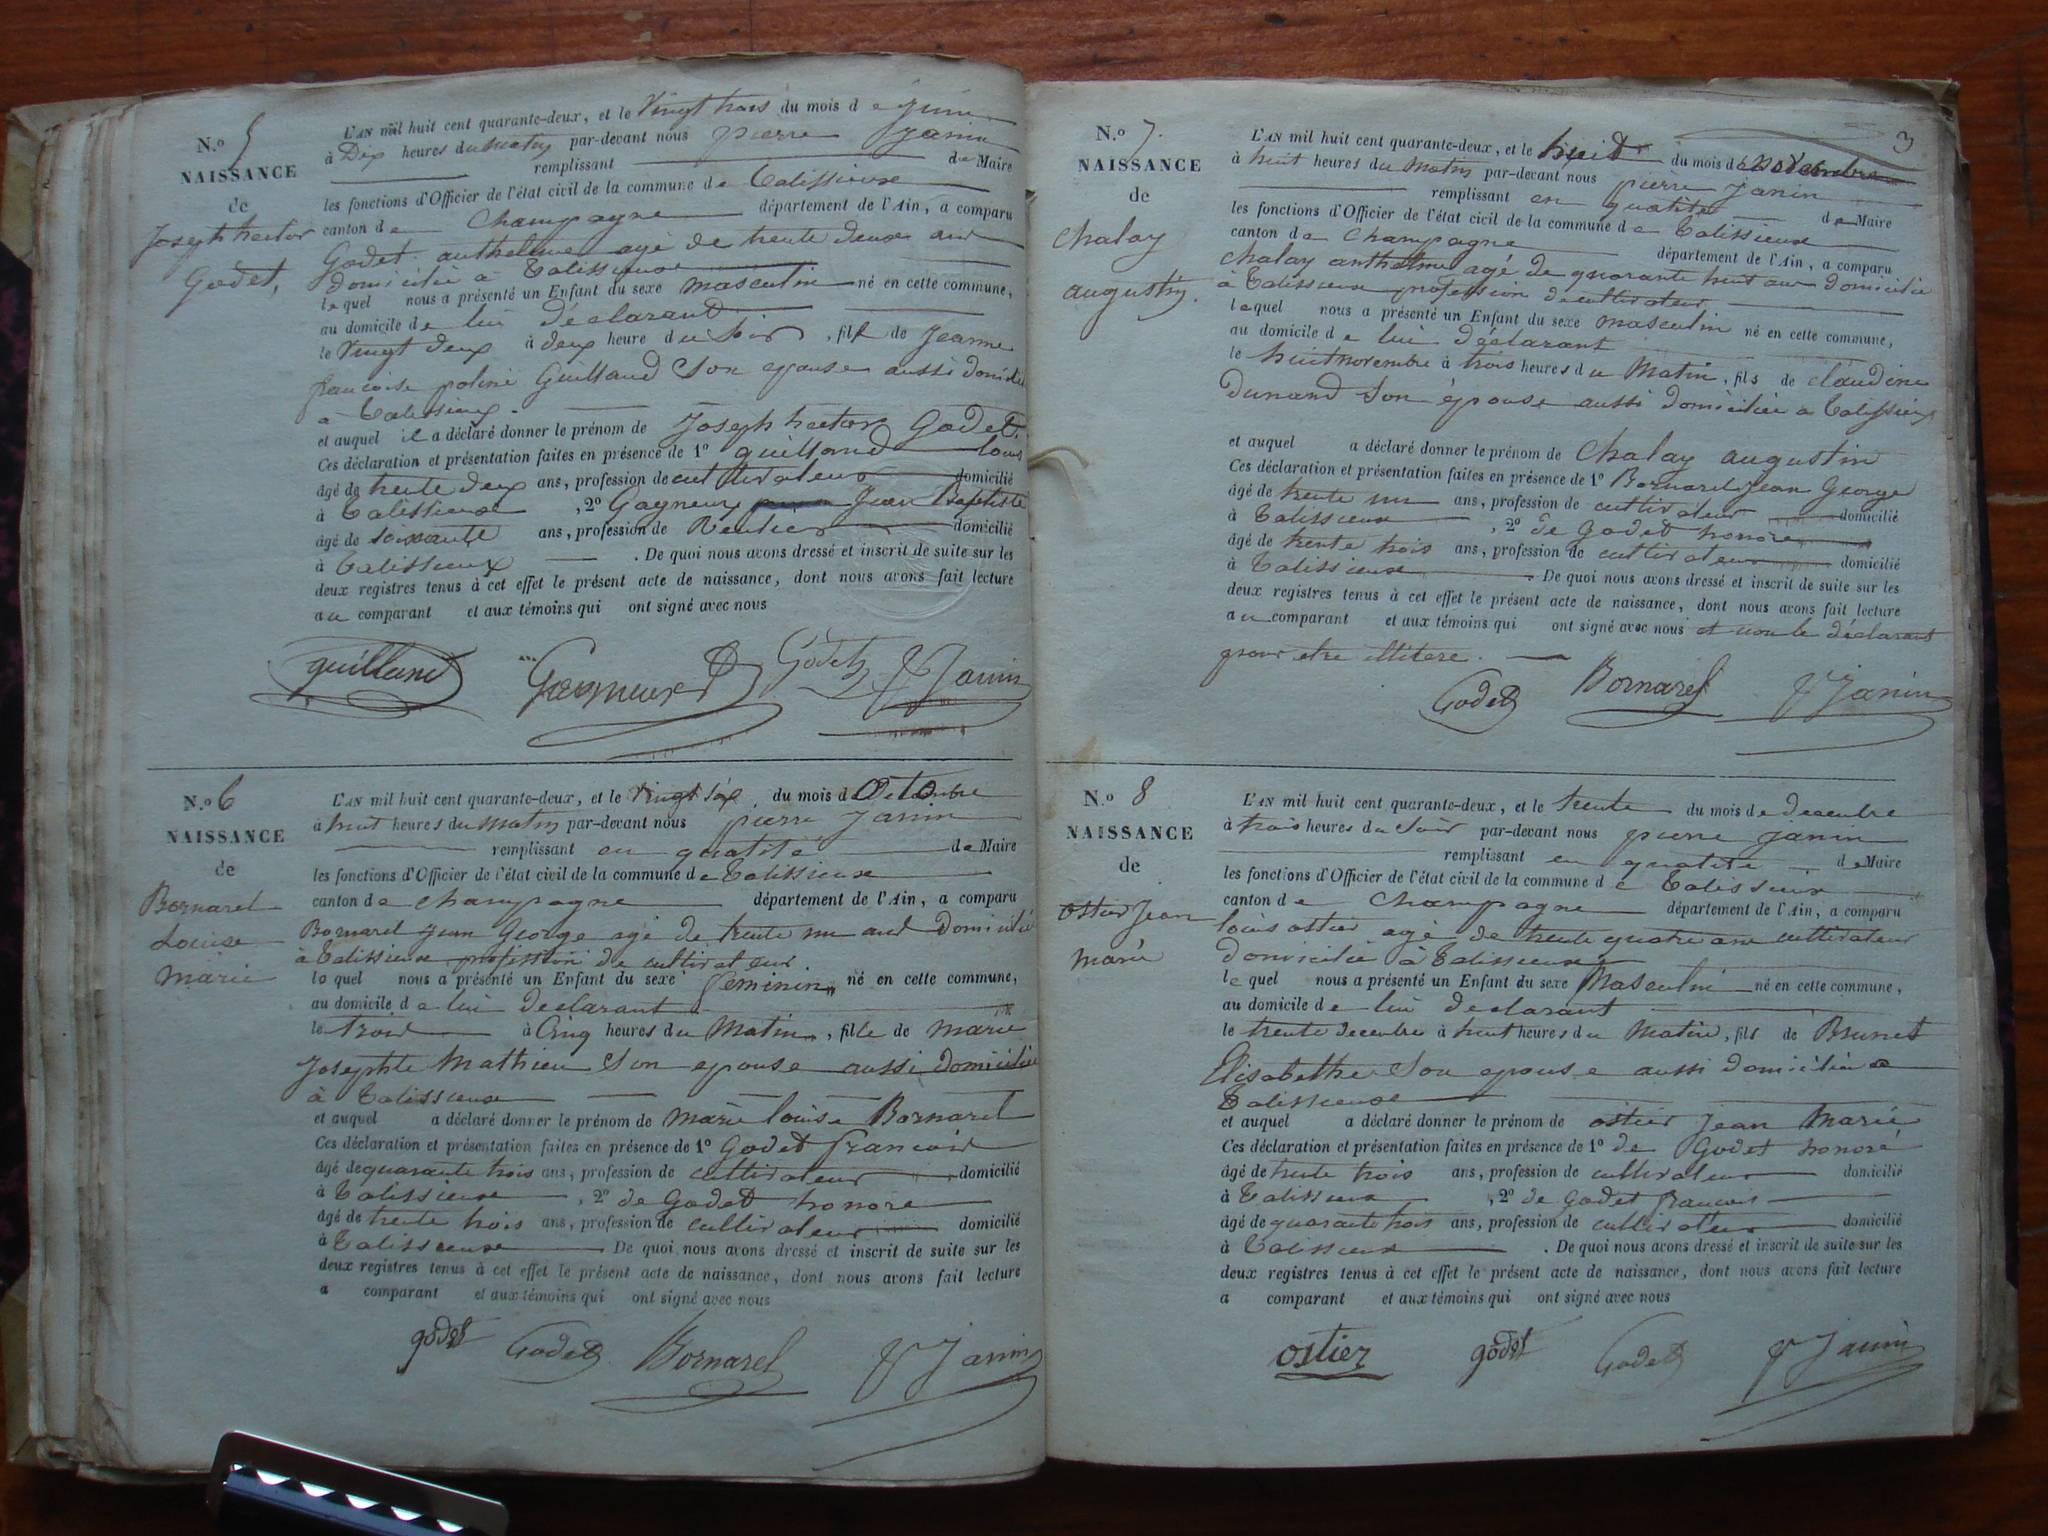 N.º 5
NAISSANCE
de
Joseph hector
Godet,
L'AN mil huit cent quarante-deux, et le Vingt trois du mois de juin
à Dix heures du matin par-devant nous pierre Janin
remplissant de Maire
les fonctions d'Officier de l'état civil de la commune de Talissieux
canton de Champagne département de l'Ain, a comparu
Godet anthelme agé de trente deux ans
domicilié à Talissieux
lequel nous a présenté un Enfant du sexe masculin né en cette commune,
au domicile de lui déclarant
le Vingt deux à deux heure du Soir, fils de Jeanne
francoise poline Guilland Son epouse aussi domicilié
a Talissieux.
et auquel il a déclaré donner le prénom de Joseph hector Godet.
Ces déclaration et présentation faites en présence de 1º guilland louis
âgé de trente deux ans, profession de cultivateur domicilié
à Talissieux, 2º Gagneux Jean Baptiste
âgé de soixante ans, profession de Rentier domicilié
à Talissieux. De quoi nous avons dressé et inscrit de suite sur les
deux registres tenus à cet effet le présent acte de naissance, dont nous avons fait lecture
au comparant et aux témoins qui ont signé avec nous
guilland Gagneux Godet Janin
N.º 6
NAISSANCE
de
Bornarel
Louise
Marie
L'AN mil huit cent quarante-deux, et le Vingt six, du mois d Octobre
à huit heures du matin par-devant nous pierre Janin
remplissant en qualité de Maire
les fonctions d'Officier de l'état civil de la commune de Talissieux
canton de Champagne département de l'Ain, a comparu
Bornarel Jean George agé de trente un ans Domicilié
à Talissieux profession de cultivateur
lequel nous a présenté un Enfant du sexe feminin né en cette commune,
au domicile de lui declarant
le trois à Cinq heures du Matin, fille de marie
Josephte Mathieu Son epouse aussi domiciliée
à Talissieux
et auquel a déclaré donner le prénom de marie louise Bornarel
Ces déclaration et présentation faites en présence de 1º Godet francois
âgé de quarante trois ans, profession de cultivateur domicilié
à Talissieux, 2º de Godet honore
âgé de trente trois ans, profession de cultivateur domicilié
à Talissieux De quoi nous avons dressé et inscrit de suite sur les
deux registres tenus à cet effet le présent acte de naissance, dont nous avons fait lecture
a comparant et aux témoins qui ont signé avec nous
godet Godet Bornarel P Janin
3
N.º 7.
NAISSANCE
de
Chalay
augustin.
L'AN mil huit cent quarante-deux, et le huit du mois de novembre
à huit heures du Matin par-devant nous pierre Janin
remplissant en qualité de Maire
les fonctions d'Officier de l'état civil de la commune de Talissieux
canton de Champagne département de l'Ain, a comparu
Chalay anthelme agé de quarante huit ans domicilié
à Talissieux profession de cultivateur
lequel nous a présenté un Enfant du sexe masculin né en cette commune,
au domicile de lui déclarant
le huit novembre à trois heures du Matin, fils de claudine
Dunand Son épouse aussi domiciliée a Talissieux
et auquel a déclaré donner le prénom de Chalay augustin
Ces déclaration et présentation faites en présence de 1º Bornarel Jean George
âgé de trente un ans, profession de cultivateur domicilié
à Talissieux, 2º de Godet honore
âgé de trente trois ans, profession de cultivateur domicilié
à Talissieux. De quoi nous avons dressé et inscrit de suite sur les
deux registres tenus à cet effet le présent acte de naissance, dont nous avons fait lecture
au comparant et aux témoins qui ont signé avec nous et non le déclarant
pour etre illitere.
Godet Bornarel P Janin
N.º 8
NAISSANCE
de
ostier Jean
marie
L'AN mil huit cent quarante-deux, et le trente du mois de decembre
à trois heures du Soir par-devant nous pierre Janin
remplissant en qualité de Maire
les fonctions d'Officier de l'état civil de la commune de Talissieux
canton de Champagne département de l'Ain, a comparu
louis ostier agé de trente quatre ans cultivateur
domicilié à Talissieux
lequel nous a présenté un Enfant du sexe Masculin né en cette commune,
au domicile de lui declarant
le trente decembre à huit heures du Matin, fils de Brunet
Elisabethe Son epouse aussi domiciliée a
Talissieux
et auquel a déclaré donner le prénom de ostier Jean Marie
Ces déclaration et présentation faites en présence de 1º de Godet honoré
âgé de trente trois ans, profession de cultivateur domicilié
à Talissieux, 2º de Godet francois
âgé de quarante trois ans, profession de cultivateur domicilié
à Talissieux. De quoi nous avons dressé et inscrit de suite sur les
deux registres tenus à cet effet le présent acte de naissance, dont nous avons fait lecture
a comparant et aux témoins qui ont signé avec nous
ostier godet Godet P Janin